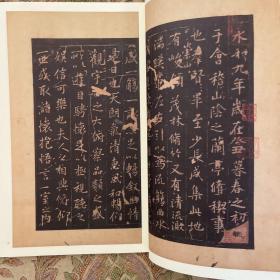 永和九年歲在癸丑暮春之初
于會稽山陰之蘭亭脩稧事
也羣賢畢至少長咸集此地
有崇山峻領茂林脩竹又有清流激
盛一觴一詠亦足以暢敘幽情
是日也天朗氣清惠風和暢仰
觀宇宙之大俯察品類之盛
所以遊目騁懷足以極視聽之
娛信可樂也夫人之相與俯仰
一世或取諸懷抱悟言一室之內